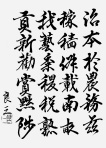 治本於農務茲
稼穡俶載南畝
我藝黍稷稅熟
貢新勸賞黜陟